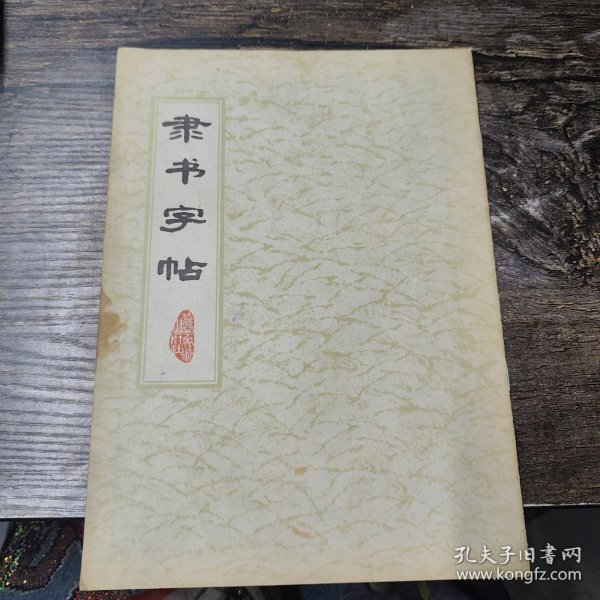 隶书字帖
孔夫子旧書网
www.kongfz.com